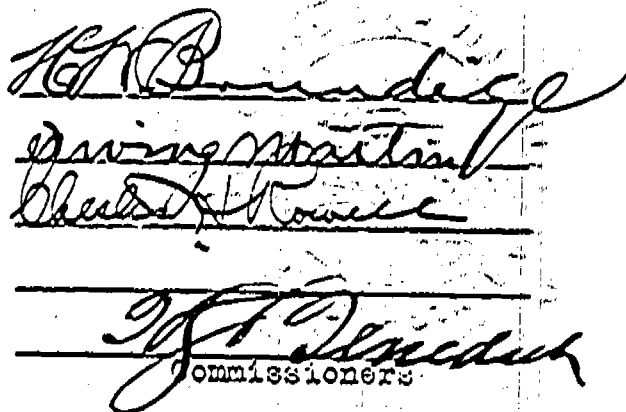 H. W. Brundige
Irving Martin
Chester H. Rowell
H. S. Benedict
Commissioners